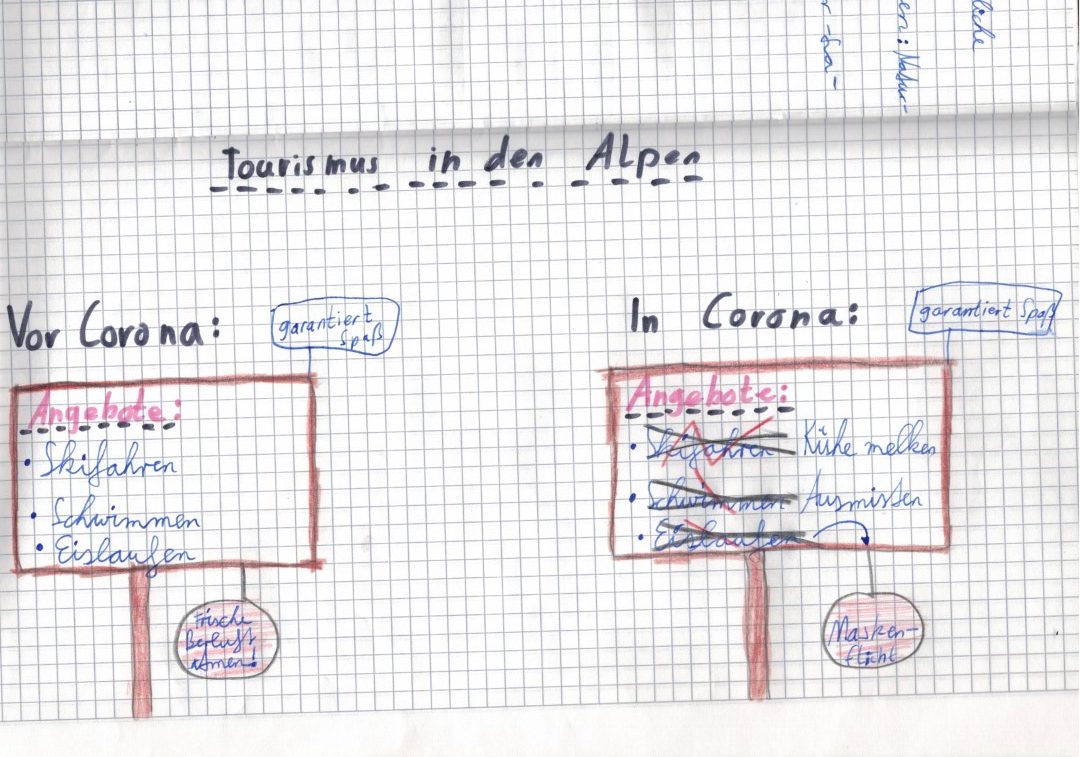 liche
en: Natur-
Tourismus in den Alpen
Vor Corona:
garantiert
Spaß
Angebote:
• Skifahren
• Schwimmen
• Eislaufen
Frische
Berluft
atmen!
In Corona:
garantiert Spaß
Angebote:
• Skifahren Kühe melken
• Schwimmen Ausmisten
• Eislaufen
Masken-
flicht